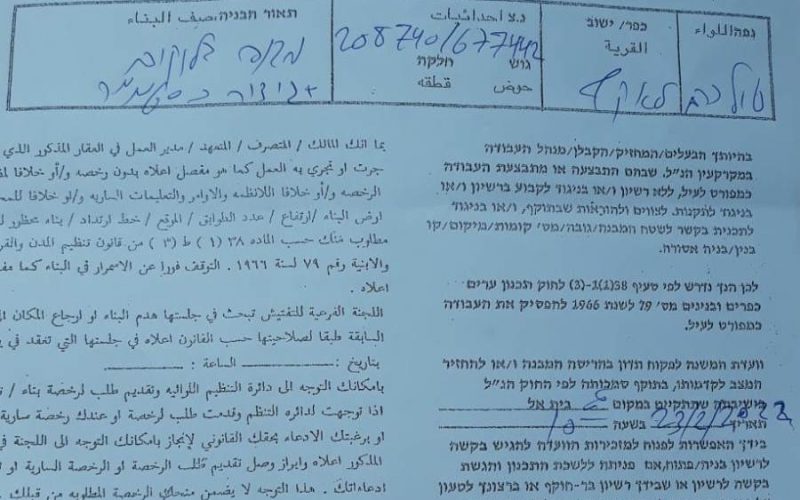 נפה/اللواء
כפר/ ישוב
القرية
נ.צ احداثيات
208740/677442
גוש חלקה
حوض قطعه
תאור חבניה/صيف البناء
טול כרם
מבנה בלוקים
בהיותך הבעלים/המחזיק/הקבלן/מנהל העבודה
במקרקעין הנ"ל. שבהם התבצעה או מתבצעת העבודה
כמפורט לעיל, ללא רשיון ו/או בניגוד לקבוע ברשיון ו/או
בניגוד לתקנות. לצווים ולהוראות שבתוקף, ו/או בניגוד
לתכנית בקשר לשטח המבנה/גובה/מס' קומות/מיקום/קו
בנין/בניה אסורה.
לכן הנך נדרש לפי סעיף 38(1)-(3) לחוק תכנון ערים
כפרים ובנינים מס' 79 לשנת 1966 להפסיק את העבודה
כמפורט לעיל.
וועדת המשנה לפקוח תדון בהריסת המבנה ו/או להחזיר
המצב לקדמותו, בתוקף סמכותה לפי החוק הנ"ל
בישיבתה שתתקיים במקום בית אל
תאריך 23/2/2022 בשעה 10
בידך האפשרות לפנות למזכירות הוועדה להגיש בקשה
לרשיון בניה/פתוח,אם פניתה ללשכת התכנון והגשת
בקשה לרשיון או שבידך רשיון בר-תוקף או ברצונך לטעון
بما انك المالك / المتصرف / المتعهد / مدير العمل في العقار المذكور الذي
جرت او تجري به العمل كما هو مفصل اعلاه بدون رخصه و/أو خلافا
الرخصه و/أو خلافا للانظمه والاوامر والتعليمات الساريه و/او خلافا
لارض البناء /ارتفاع / عدد الطوابق / الموقع / خط ارتداد / بناء محظور
مطلوب منك حسب الماده ٣٨ (١) ط (٣) من قانون تنظيم المدن
والابنية رقم ٧٩ لسنة ١٩٦٦ . التوقف فورا عن الاستمرار في البناء كما
اعلاه .
اللجنة الفرعية للتفتيش تبحث في جلستها هدم البناء او ارجاع المكان
السابقة طبقا لصلاحيتها حسب القانون اعلاه في جلستها التي تعقد في
بتاريخ : الساعة :
بامكانك التوجه الى دائرة التنظيم اللوائيه وتقديم طلب لرخصة بناء /
اذا توجهت لدائره التنظم وقدمت طلب لرخصة او عندك رخصة سارية
او برغبتك الادعاء بحقك القانوني لإنجاز بامكانك التوجه الى اللجنة
المذكور اعلاه وابراز وصل تقديم طلب الرخصة او الرخصة السارية او
ادعاءاتك . هذا التوجه لا يضمن منحك الرخصة المطلوبه من قبلك .